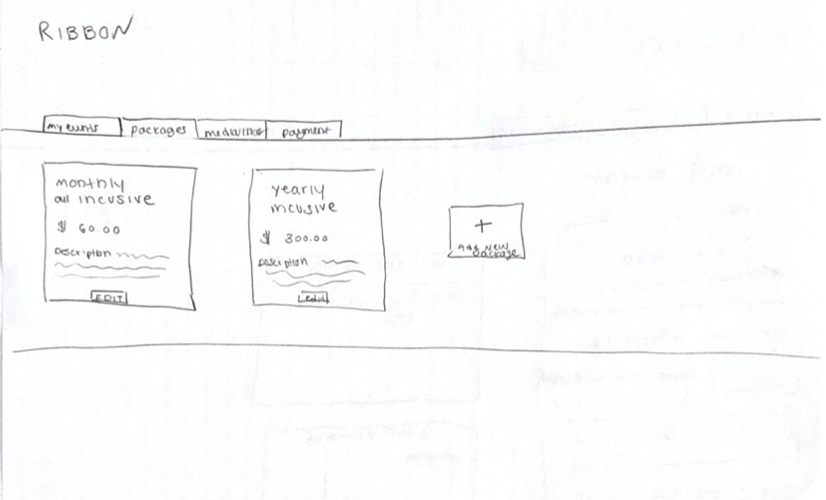 RIBBON
my events packages media/ payment
monthly
all incusive
$ 60.00
Description
EDIT
yearly
incusive
$ 300.00
Description
edit
+
Add New
package